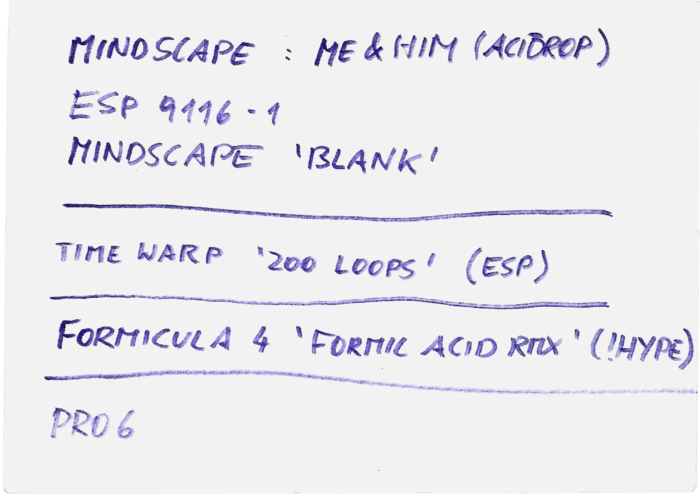 MINDSCAPE : ME & HIM (ACIDROP)
ESP 9116-1
MINDSCAPE 'BLANK'
TIME WARP '200 LOOPS' (ESP)
FORMICULA 4 'FORMIC ACID RMX' (!HYPE)
PRO 6